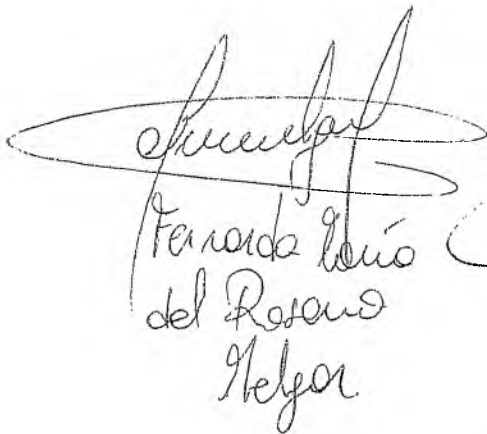 Fernanda María
del Rosario
Melgar